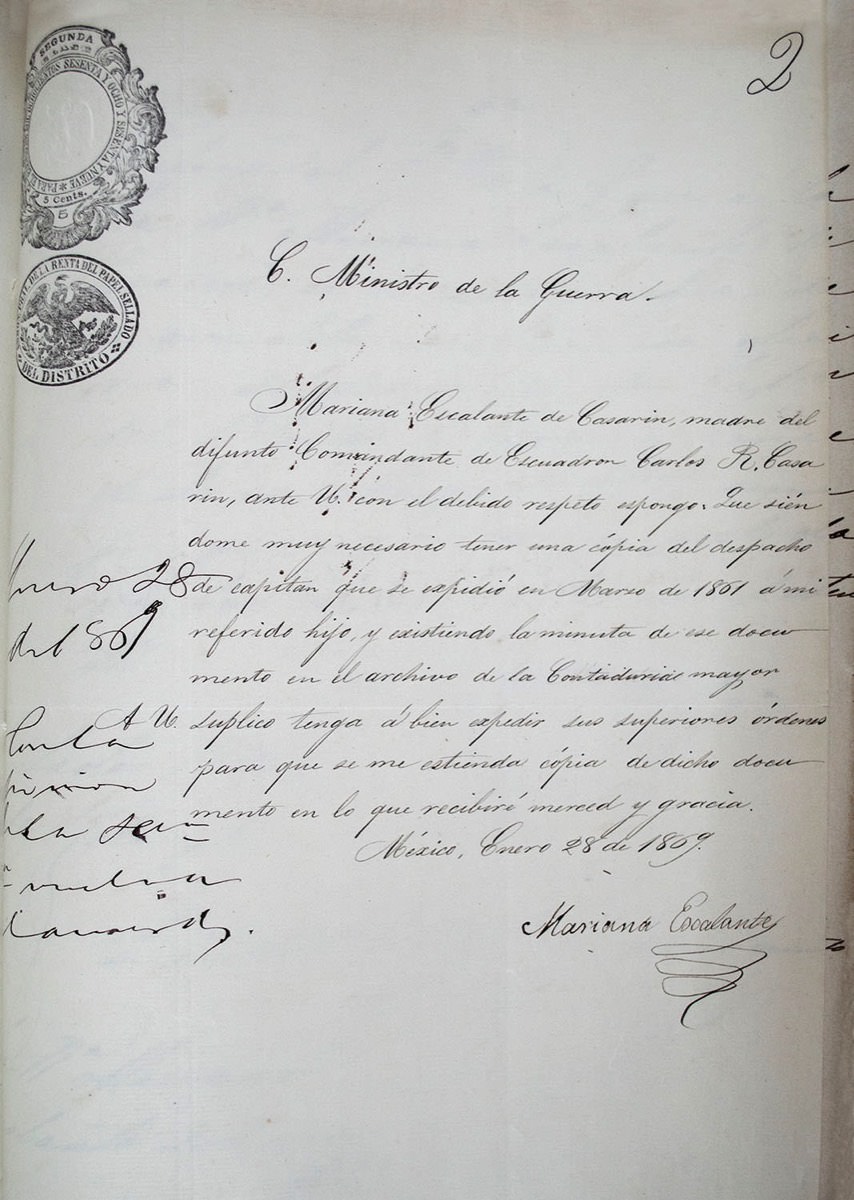 2
SEGUNDA
OCHOCIENTOS SESENTA Y OCHO Y SESENTA Y NUEVE * PARA
5 Cents.
5
DE LA RENTA DEL PAPEL SELLADO
DEL DISTRITO
C. Ministro de la Guerra.
Mariana Escalante de Casarin, madre del
difunto Comandante de Escuadron Carlos R. Casa
rin, ante U. con el debido respeto espongo: Que sién
dome muy necesario tener una cópia del despacho
de capitan que se expidió en Marzo de 1861 á mi
referido hijo, y existiendo la minuta de ese docu
mento en el archivo de la Contaduria mayor
A U. suplico tenga á bien expedir sus superiores órdenes
para que se me estienda cópia de dicho docu
mento en lo que recibiré merced y gracia.
México, Enero 28 de 1869.
Mariana Escalante
28
de 1869
la
vuelva